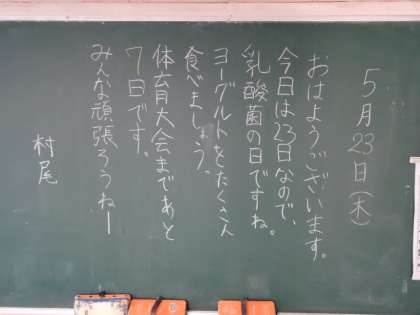 5月23日(木)
おはようございます。
今日は23日なので、
乳酸菌の日ですね。
ヨーグルトをたくさん
食べましょう。
体育大会まであと
7日です。
みんな頑張ろうねー
村尾